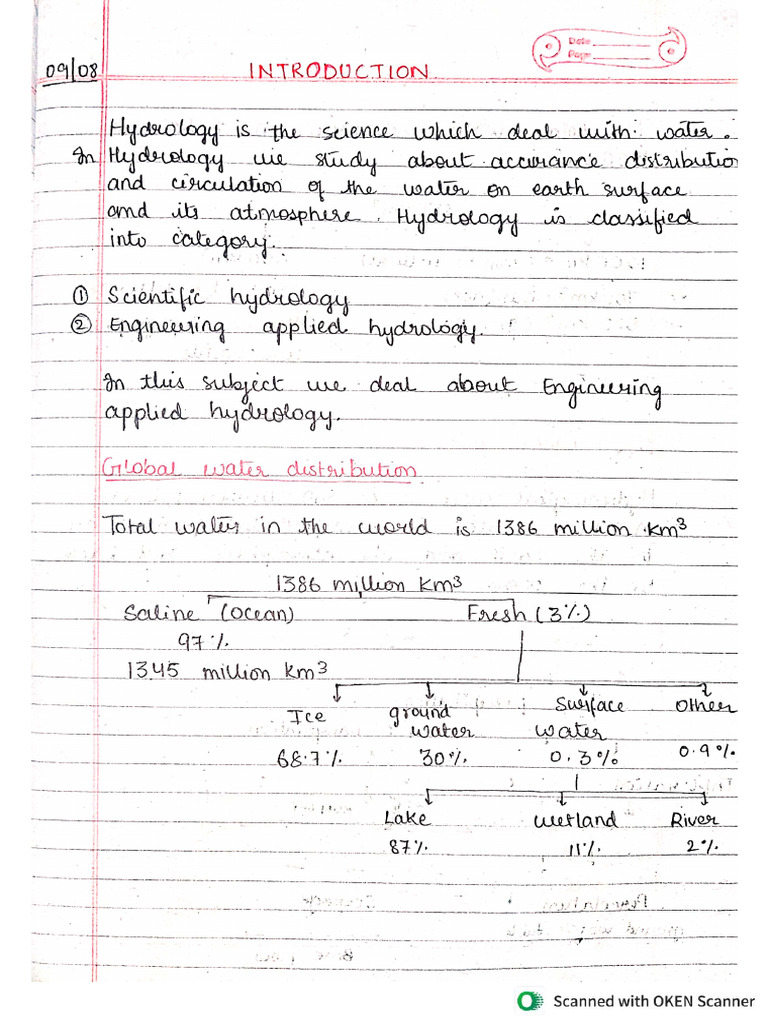 Date
Page
09/08
INTRODUCTION
Hydrology is the science which deal with water.
In Hydrology we study about accurance distribution
and circulation of the water on earth surface
and its atmosphere. Hydrology is classified
into category.
① Scientific hydrology
② Engineering applied hydrology.
In this subject we deal about Engineering
applied hydrology.
Global water distribution
Total water in the world is 1386 million km³
1386 million km³
Saline (ocean) Fresh (3%)
97%
1345 million km³
Ice ground water Surface water Other
68.7% 30% 0.3% 0.9%
Lake wetland River
87% 11% 2%
Scanned with OKEN Scanner